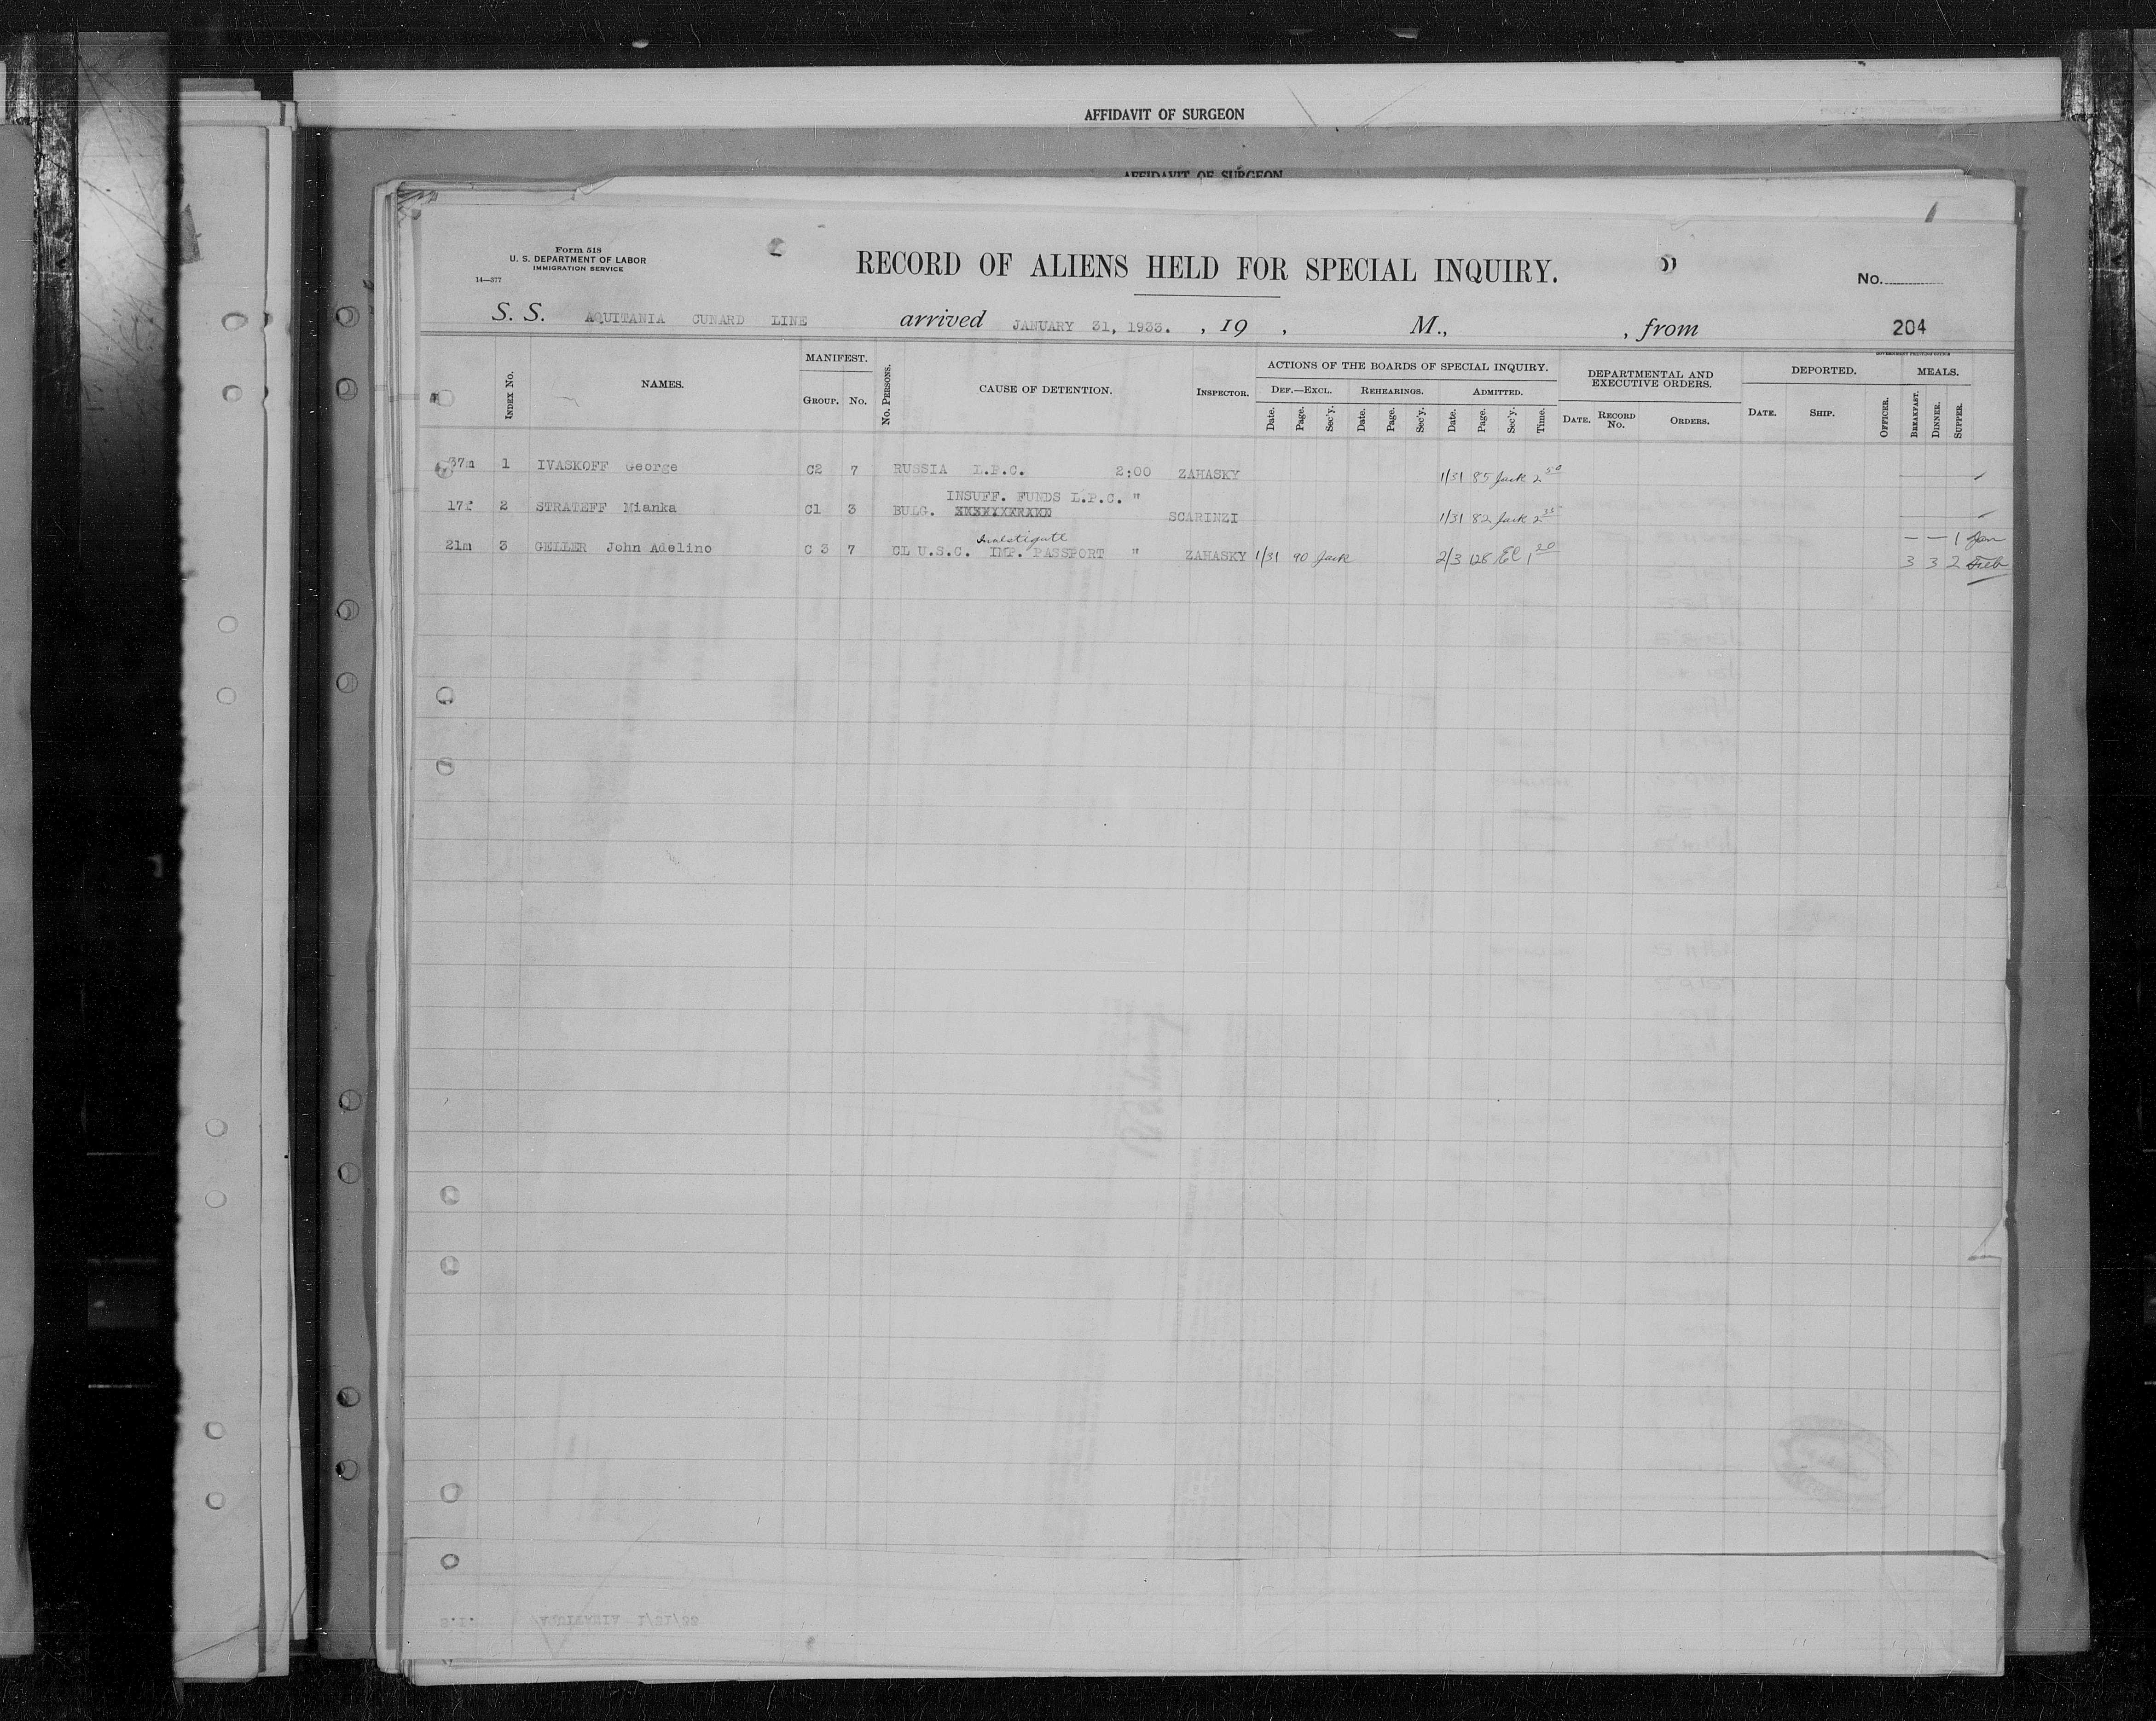 AFFIDAVIT OF SURGEON
AFFIDAVIT OF SURGEON
Form 518
U. S. DEPARTMENT OF LABOR
IMMIGRATION SERVICE
14—577
RECORD OF ALIENS HELD FOR SPECIAL INQUIRY.
No.
S. S. AQUITANIA CUNARD LINE arrived JANUARY 31, 1933. , 19 , M., , from 204
GOVERNMENT PRINTING OFFICE
INDEX No. NAMES. MANIFEST. GROUP. No. No. PERSONS. CAUSE OF DETENTION. INSPECTOR. ACTIONS OF THE BOARDS OF SPECIAL INQUIRY. DEPARTMENTAL AND EXECUTIVE ORDERS. DEPORTED. MEALS.
DEF.—EXCL. REHEARINGS. ADMITTED.
Date. Page. Sec'y. Date. Page. Sec'y. Date. Page. Sec'y. Time. DATE. RECORD No. ORDERS. DATE. SHIP. OFFICER. BREAKFAST. DINNER. SUPPER.
37m 1 IVASKOFF George C2 7 RUSSIA L.P.C. 2:00 ZAHASKY 1/31 85 Jack 2 50
INSUFF. FUNDS L.P.C. "
17f 2 STRATEFF Mianka C1 3 BULG. SCARINZI 1/31 82 Jack 2 35
Investigate
21m 3 GELLER John Adelino C 3 7 CL U.S.C. IMP. PASSPORT " ZAHASKY 1/31 90 Jack 2/3 128 El 1 20 — — 1 Jan
3 3 2 Feb